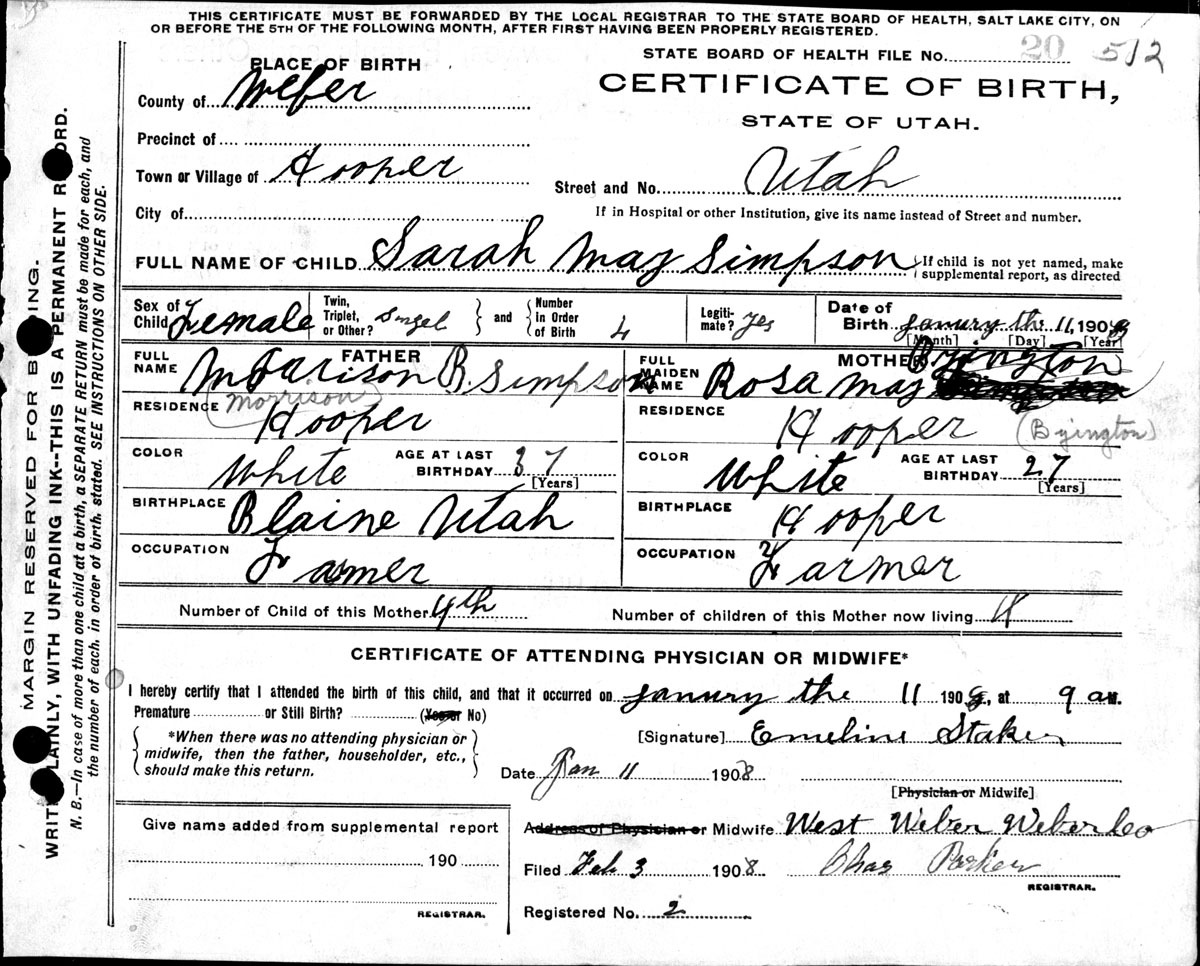 THIS CERTIFICATE MUST BE FORWARDED BY THE LOCAL REGISTRAR TO THE STATE BOARD OF HEALTH, SALT LAKE CITY, ON
OR BEFORE THE 5TH OF THE FOLLOWING MONTH, AFTER FIRST HAVING BEEN PROPERLY REGISTERED.
STATE BOARD OF HEALTH FILE No. 20 512
PLACE OF BIRTH
CERTIFICATE OF BIRTH,
County of Weber
STATE OF UTAH.
Precinct of
Town or Village of Hooper
Street and No. Utah
City of
If in Hospital or other Institution, give its name instead of Street and number.
FULL NAME OF CHILD Sarah May Simpson
If child is not yet named, make
supplemental report, as directed
Sex of Child Female
Twin, Triplet, or Other? Singel
and Number in Order of Birth 4
Legiti-mate? Yes
Date of Birth Janury the 11, 1908
[Month] [Day] [Year]
FATHER
FULL NAME Marison B. Simpson
(Morrison)
RESIDENCE Hooper
COLOR White
AGE AT LAST BIRTHDAY 37 [Years]
BIRTHPLACE Blaine Utah
OCCUPATION Farmer
MOTHER
FULL MAIDEN NAME Rosa May Byington
RESIDENCE Hooper (Byington)
COLOR White
AGE AT LAST BIRTHDAY 27 [Years]
BIRTHPLACE Hooper
OCCUPATION Farmer
Number of Child of this Mother 4th
Number of children of this Mother now living 4
CERTIFICATE OF ATTENDING PHYSICIAN OR MIDWIFE*
I hereby certify that I attended the birth of this child, and that it occurred on Janury the 11 1908, at 9 a M.
Premature or Still Birth? (Yes or No)
*When there was no attending physician or
midwife, then the father, householder, etc.,
should make this return.
[Signature] Emeline Staker
Date Jan 11 1908
[Physician or Midwife]
Give name added from supplemental report
190
REGISTRAR.
Address of Physician or Midwife West Weber Weber Co
Filed Feb 3 1908 Chas Parker
REGISTRAR.
Registered No. 2
MARGIN RESERVED FOR BINDING.
WRITE PLAINLY, WITH UNFADING INK--THIS IS A PERMANENT RECORD.
N. B.—In case of more than one child at a birth, a SEPARATE RETURN must be made for each, and
the number of each, in order of birth, stated. SEE INSTRUCTIONS ON OTHER SIDE.